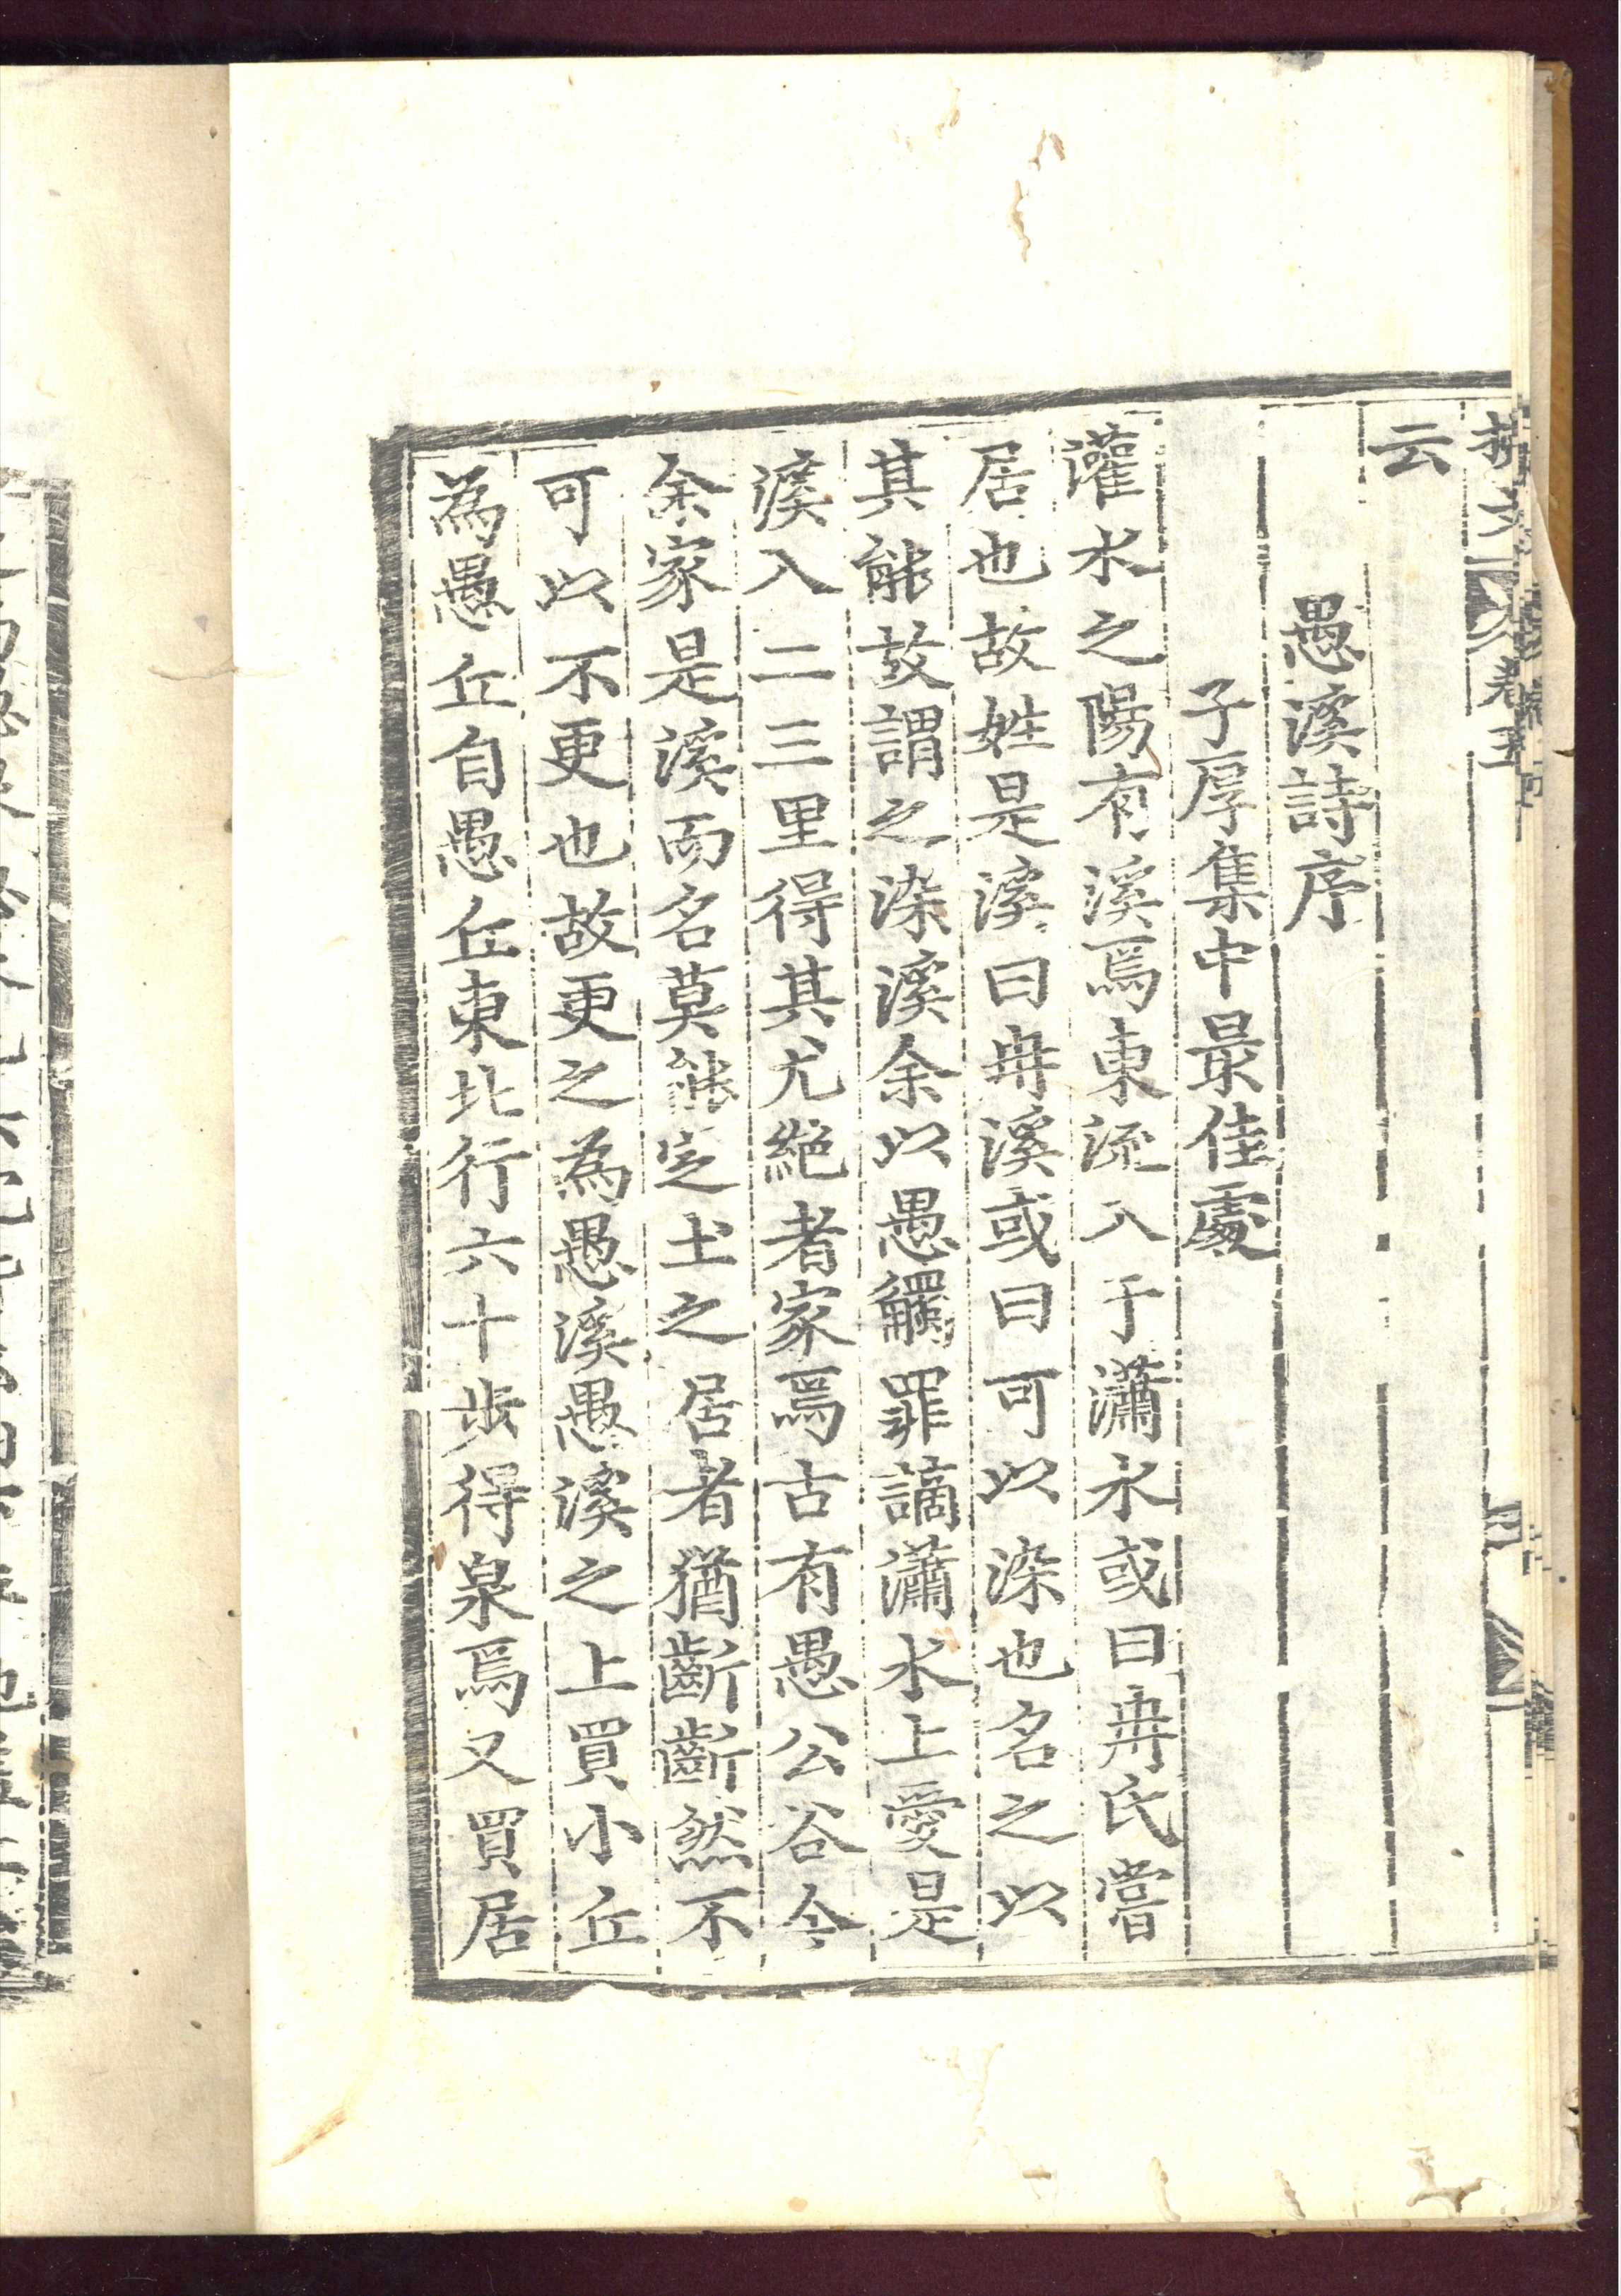 云
愚溪詩序
子厚集中最佳處
灌水之陽有溪焉東流入于瀟水或曰冉氏嘗
居也故姓是溪曰冉溪或曰可以染也名之以
其能故謂之染溪余以愚觸罪謫瀟水上愛是
溪入二三里得其尤絕者家焉古有愚公谷今
余家是溪而名莫能定土之居者猶齗齗然不
可以不更也故更之為愚溪愚溪之上買小丘
為愚丘自愚丘東北行六十步得泉焉又買居